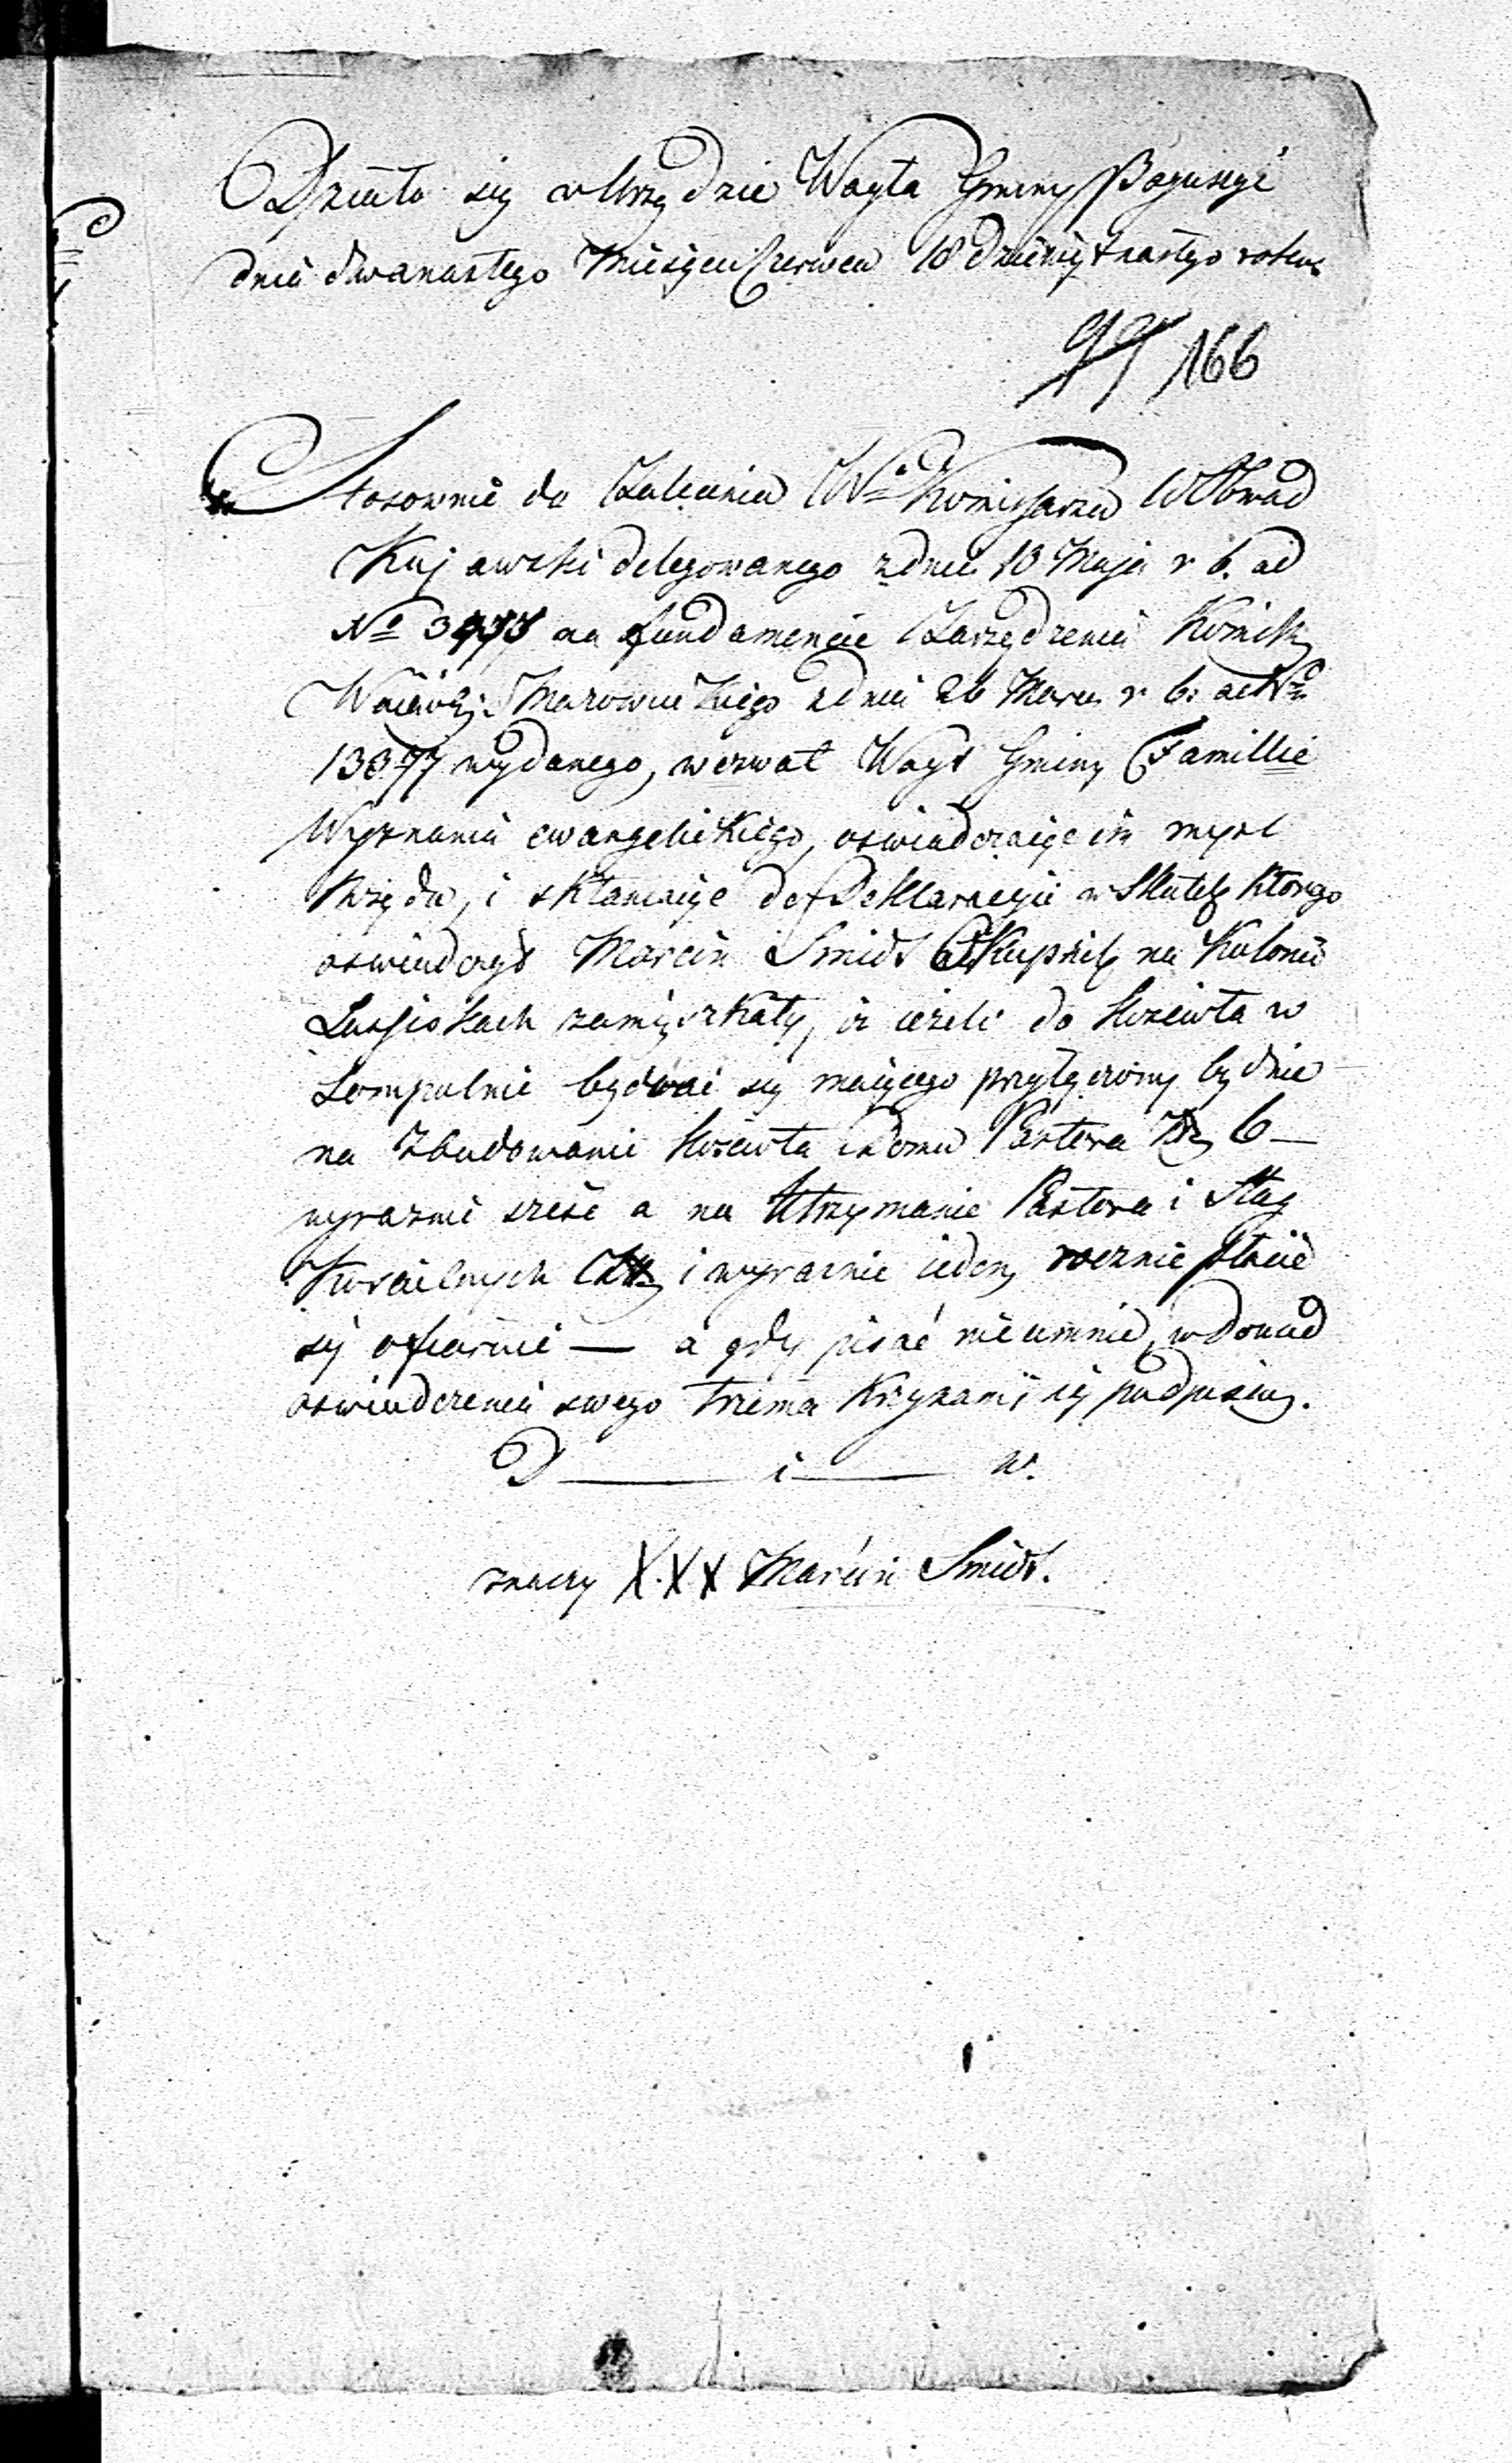 Działo się w Urzędzie Woyta Gminy
dnia dwunastego Miesiąca Czerwca 18 dziewiętnastego roku
99 166
Stosownie do Zalecenia Wo Kommissarza W Obwod
Kujawski delegowanego z dnia 18 Maja r b. ad
No na fundamencie Zarządzenia Komiss
Woiewodz: Mazowieckiego z dnia 26 Marca r b: ad No
wydanego, wezwał Woyt Gminy Famillie
Wyznania ewangelickiego, oswiadczaiąc im mysl
Rządu, i skłaniaiąc do Deklaracyii w Skutek ktorego
oswiadczył Marcin Smidt Okupnik na Kolonii
zamięszkały, iż ieżeli do Kościoła w
Sompolnie bydować się maiącego przyłączony będzie
na Zbudowanie Kościoła i Domu Pastora Zł 6 —
wyraznie sześć a na Utrzymanie Pastora i Sług
Kościelnych Zł i wyraznie ieden, rocznie płacić
się ofiaruie — a gdy pisać nie umnie, w Dowod
oswiadczenia swego trzema Krzyżami się podpisuię.
D — i — w.
znaczy X.X X Marcin Smidt.